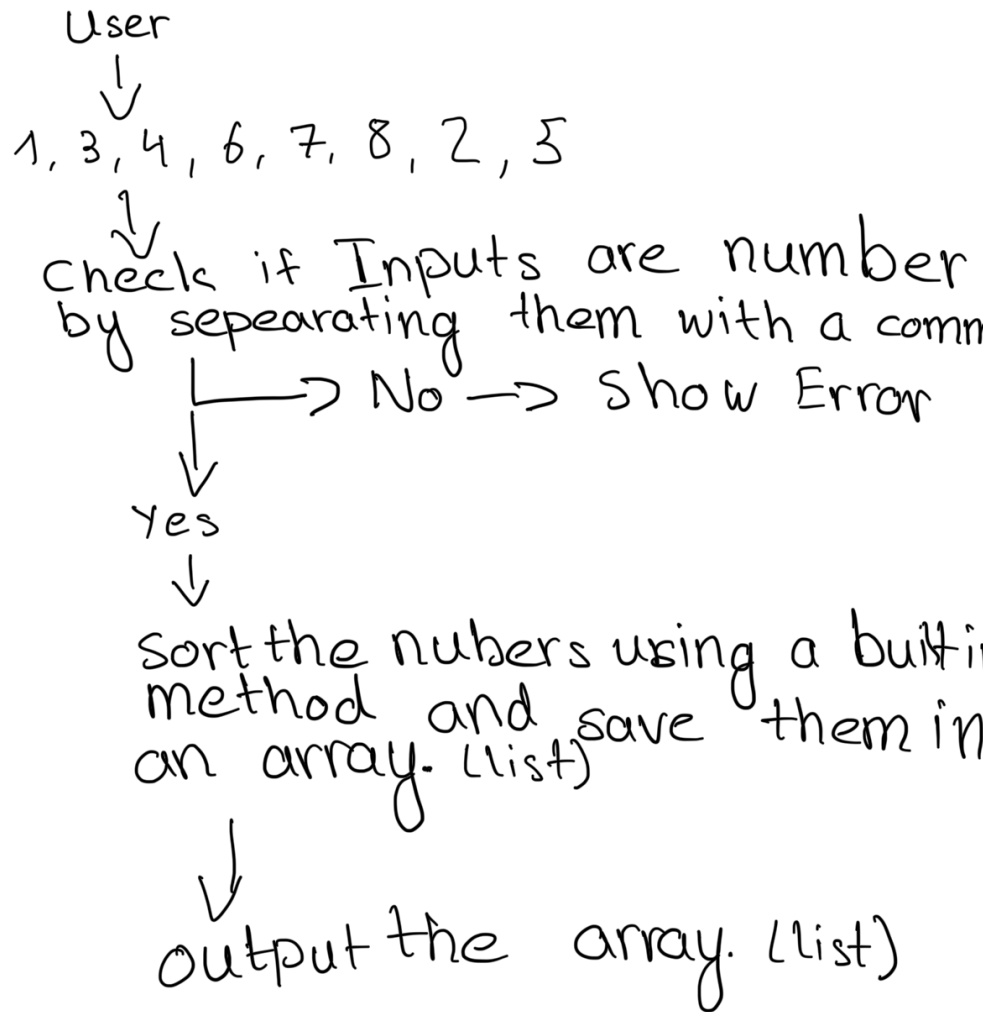 User
1, 3, 4, 6, 7, 8, 2, 5
Check if Inputs are number
by sepearating them with a comm
No → Show Error
Yes
Sort the nubers using a builtin
method and save them in
an array. (list)
output the array. (list)